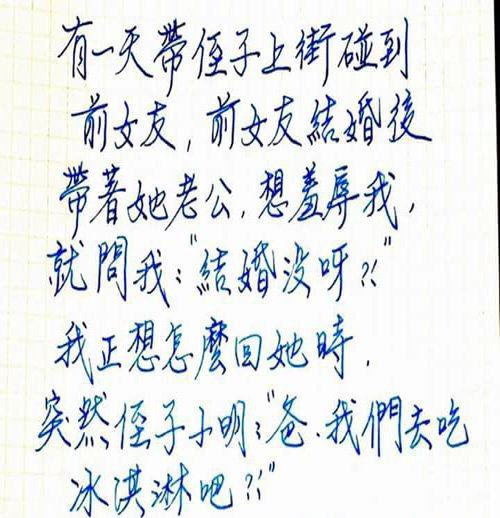 有一天帶侄子上街碰到
前女友，前女友結婚後
帶著她老公，想羞辱我，
就問我："結婚没呀?!"
我正想怎麼回她時，
突然侄子小明："爸、我們去吃
冰淇淋吧?!"